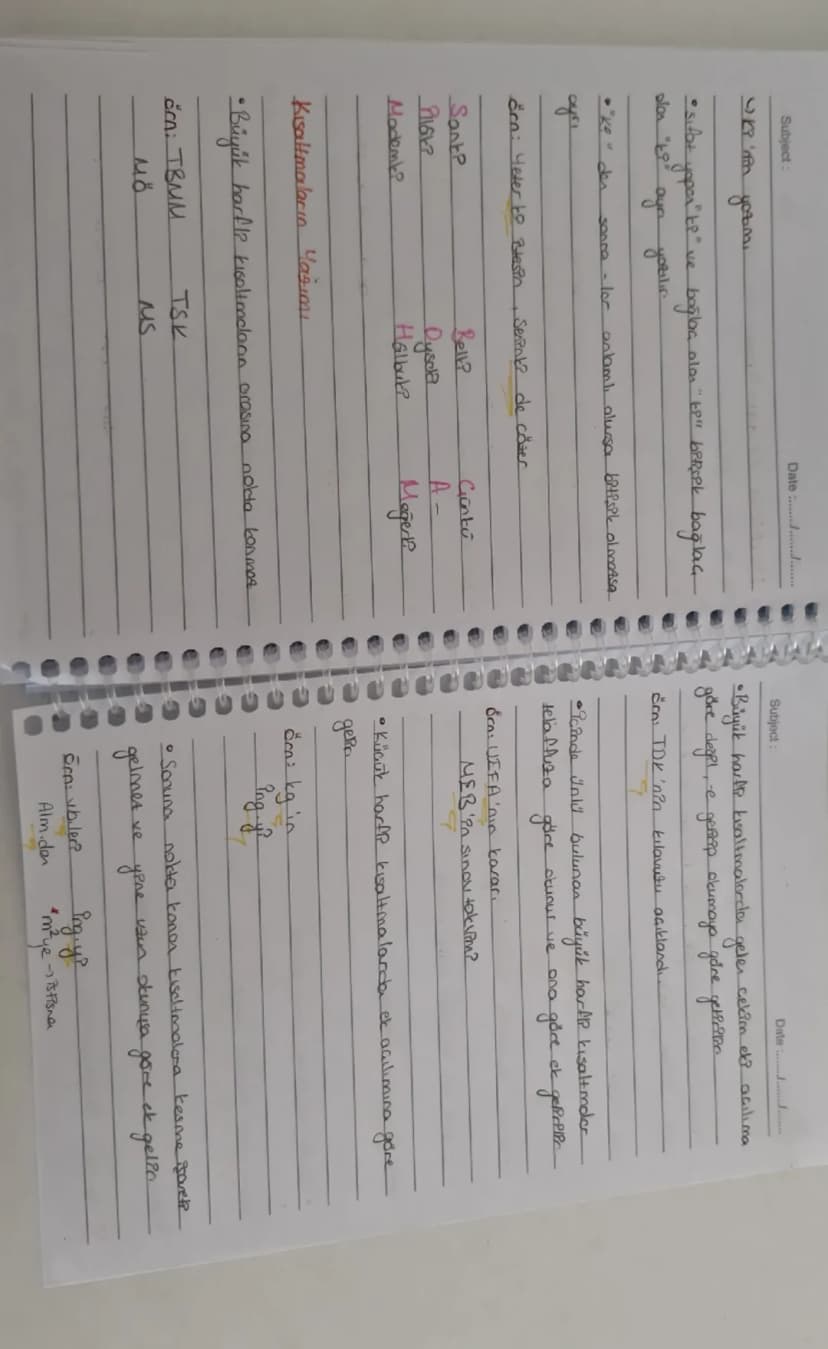 Subject :
Date :....../....../......
↳ Ki'nin yazımı
• sıfat yapan "ki" ve bağlaç olan "ki" bitişik bağlaç
olan "ki" ayrı yazılır.
• "ki" den sonra -lar anlamlı olursa bitişik olmazsa
ayrı
Örn: Yeter ki istesin, seninki de çözer
Sanki Belki Çünkü
İllaki Oysaki A-
Mademki Hâlbuki Meğerki
Kısaltmaların Yazımı
• Büyük harfli kısaltmaların arasına nokta konmaz
Örn: TBMM TSK
MÖ MS
Subject :
Date :....../....../......
• Büyük harfli kısaltmalarda gelen çekim eki açılıma
göre değil, -e getirip okumaya göre getirilir
Örn: TDK'nin kılavuzu açıklandı.
• İçinde ünlü bulunan büyük harfli kısaltmalar
telaffuza göre okunur ve ona göre ek getirilir
Örn: UEFA'nın kararı
MEB'in sınav takvimi
• Küçük harfli kısaltmalarda ek açılımına göre
gelir
Örn: kg'ın
İng.yi
• Sonuna nokta konan kısaltmalara kesme işareti
gelmez ve yine uzun okunuşa göre ek gelir
Örn: vb.leri İng.yi
Alm.dan • m²ye → istisna